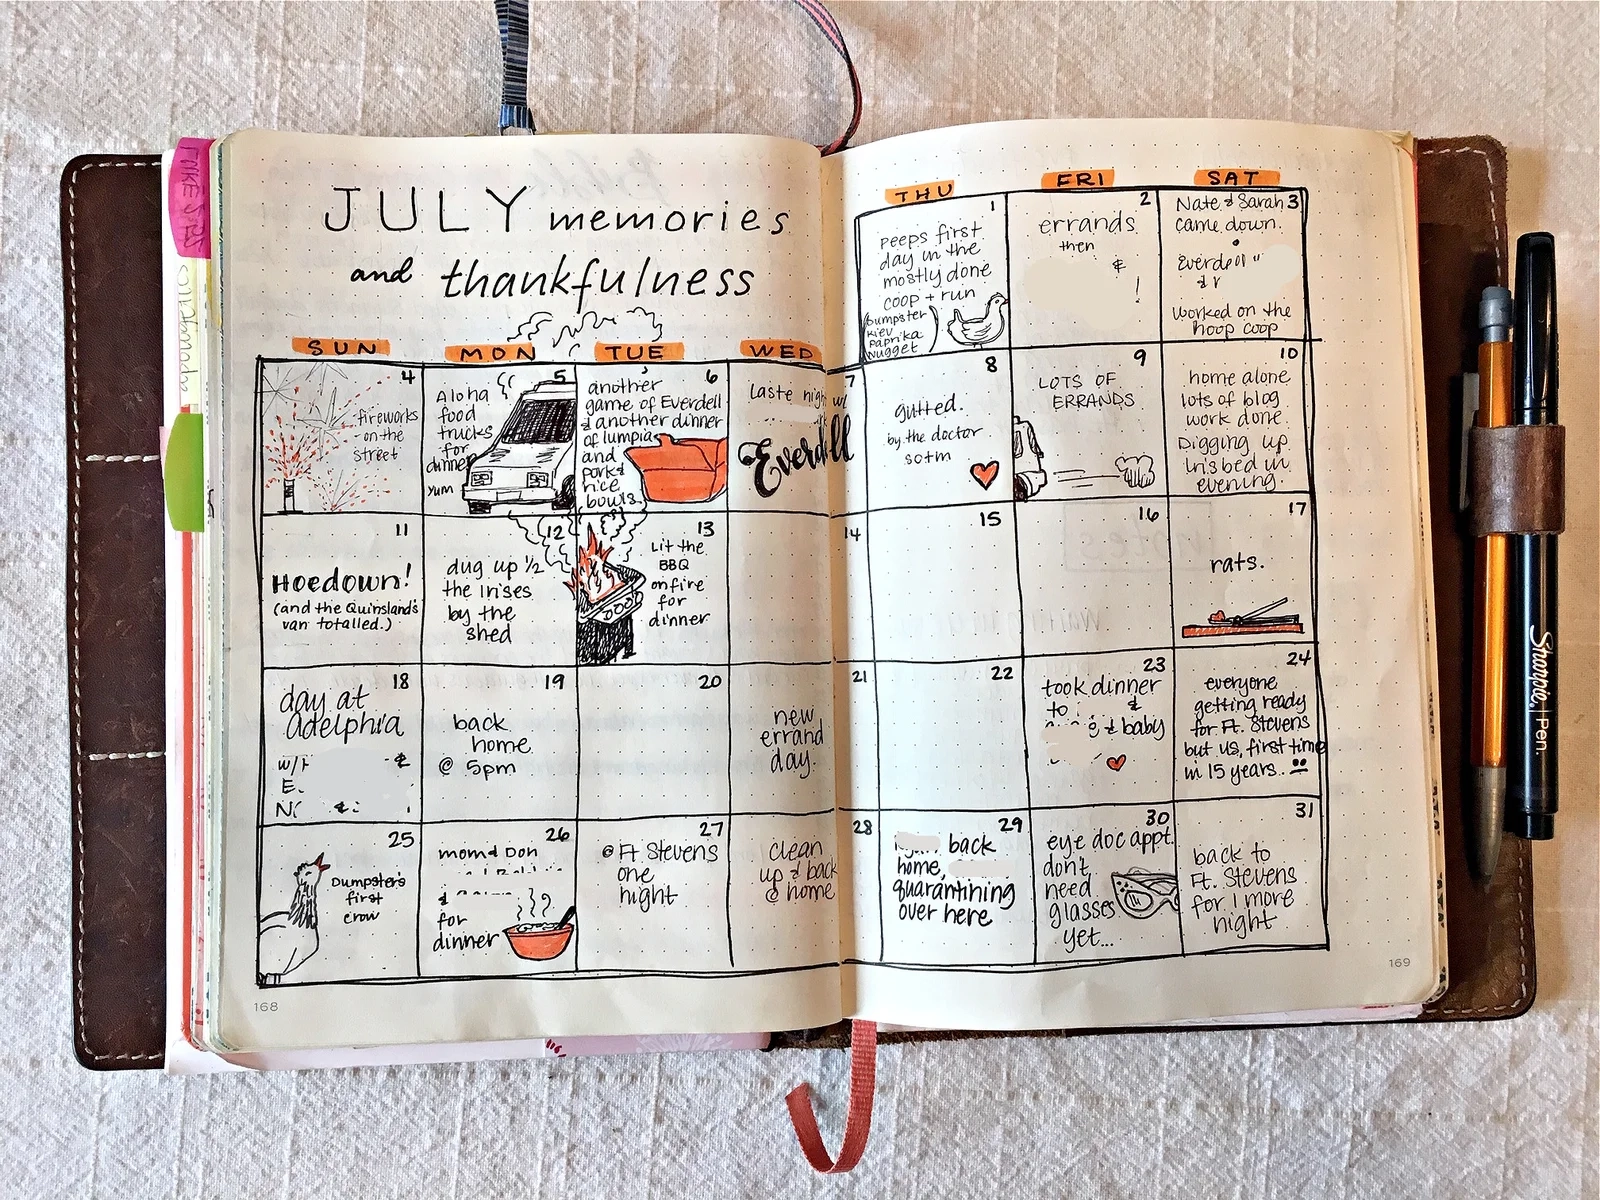 JULY memories
and thankfulness
SUN MON TUE WED THU FRI SAT
1
peeps first
day in the
mostly done
coop + run
(Dumpster
Kiev
Paprika
Nugget)
2
errands
then
&
!
3
Nate & Sarah
came down.
Everdell
&
Worked on the
hoop coop
4
fireworks
on the
street
5
Aloha
food
trucks
for
dinner
yum
6
another
game of Everdell
& another dinner
of lumpia
and
pork &
rice
bowls.
7
laste night w/
Everdell
8
gutted.
by the doctor
sotm
9
LOTS OF
ERRANDS
10
home alone
lots of blog
work done.
Digging up
iris bed in
evening.
11
Hoedown!
(and the Quinsland's
van totalled.)
12
dug up 1/2
the irises
by the
shed
13
Lit the
BBQ
on fire
for
dinner
14
15
16
17
rats.
18
day at
adelphia
w/
&
E.
&
19
back
home
@ 5pm
20
21
new
errand
day.
22
23
took dinner
to
&
& baby
24
everyone
getting ready
for Ft. Stevens
but us, first time
in 15 years..
25
Dumpster's
first
crow
26
mom & Don
&
for
dinner
27
@ Ft Stevens
one
night
28
clean
up & back
@ home
29
back
home,
quarantining
over here
30
eye doc appt.
don't
need
glasses
yet...
31
back to
Ft. Stevens
for 1 more
night
168
169
Sharpie. Pen.